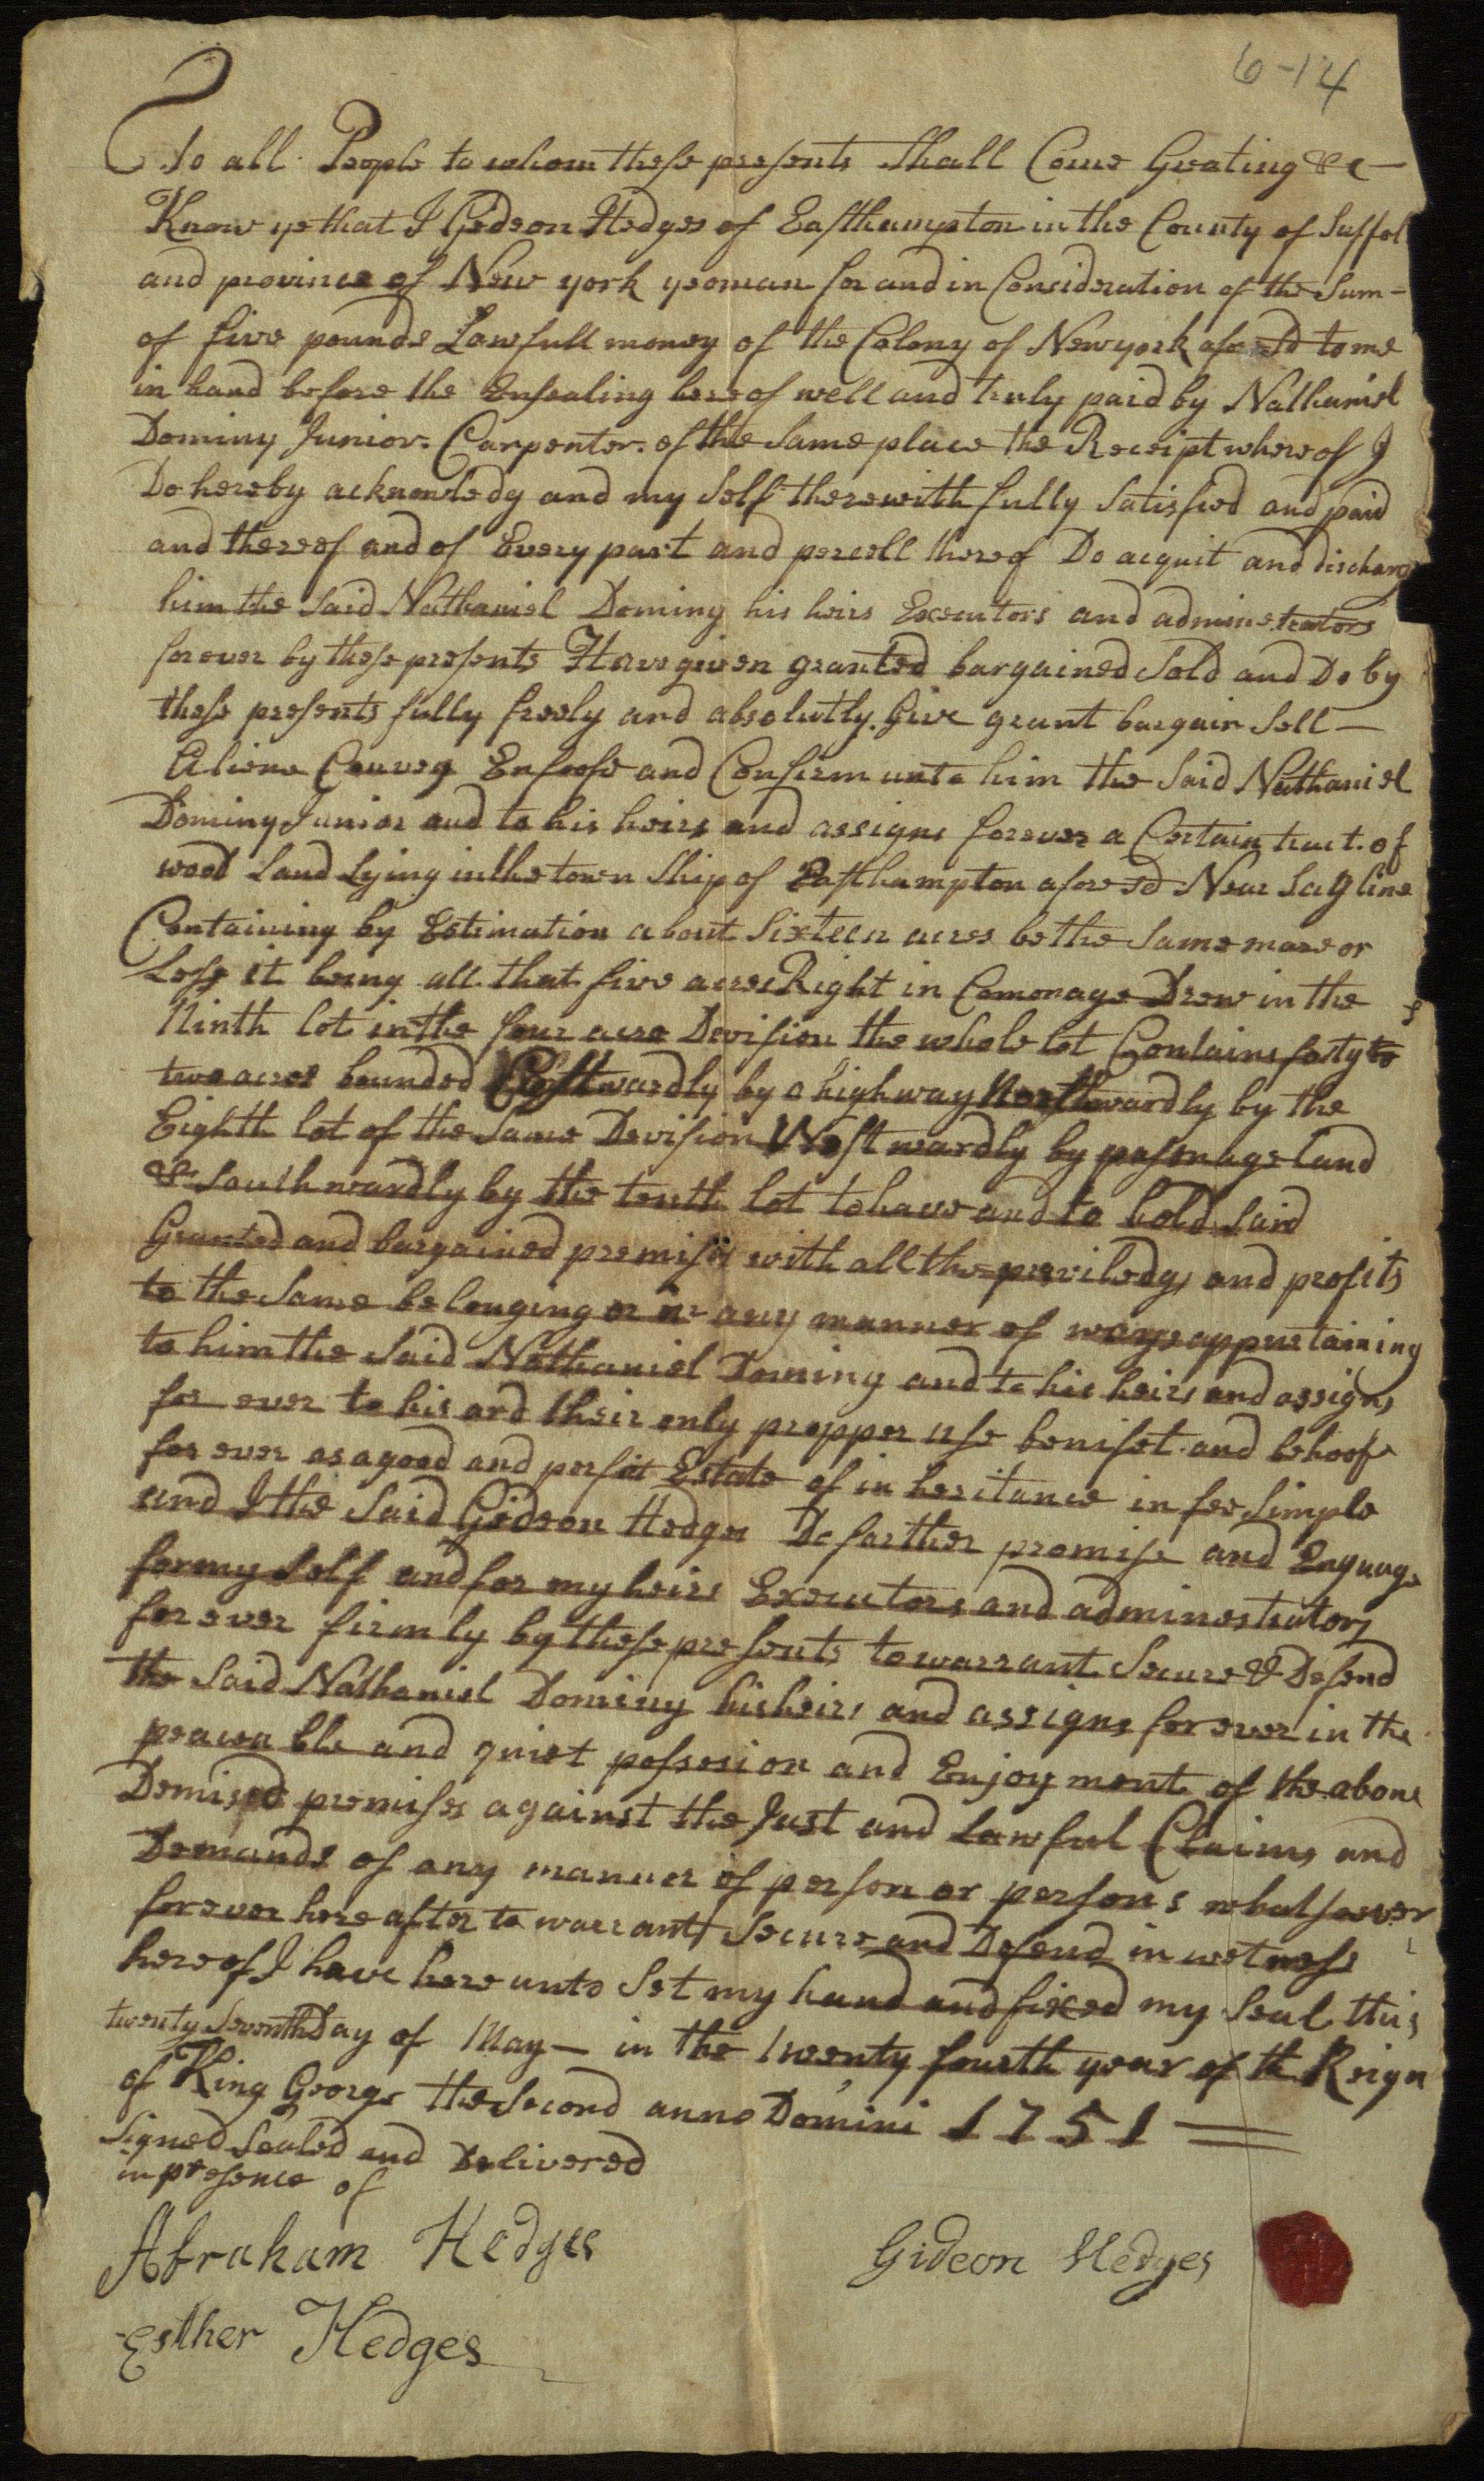 6-14
To all People to whom these presents Shall Come Greating &c—
Know ye that I Gideon Hedges of Easthampton in the County of Suffol
and province of New york yeoman for and in Consideration of the Sum-
of five pounds Lawfull money of the Colony of Newyork afores'd to me
in hand before the Ensealing hereof well and truly paid by Nathaniel
Dominy Junior. Carpenter. of the Same place the Receipt whereof I
Do hereby acknowledg and my Self therewith fully Satisfied and paid
and thereof and of Every part and percell thereof Do acquit and discharg
him the Said Nathaniel Dominy his heirs Executors and adminestrators
forever by these presents Have given granted bargained Sold and Do by
these presents fully freely and absolutly. Give grant bargain Sell—
Aliene Convey Enfeofe and Confirm unto him the Said Nathaniel
Dominy Junior and to his heirs and assigns forever a Certain tract. of
wood Land Lying in the town Ship of Easthampton afores'd Near Sag line
Containing by Estimation about Sixteen acres be the Same more or
Less it being all that five acres Right in Comonage Drew in the
Ninth lot in the four acre Devision the whole lot Contains forty to
two acres bounded Eastwardly by a highway Northwardly by the
Eighth lot of the Same Devision Westwardly by pasonage land
& Southwardly by the tenth lot to have and to hold Said
Granted and bargained premises with all the previledgs and profits
to the Same belonging or in any manner of ways appertaining
to him the Said Nathaniel Dominy and to his heirs and assigns
for ever to his and their only propper use benifet and behoof
for ever as a good and perfit Estate of in heritance in fee Simple
and I the Said Gideon Hedges Do farther promise and Enguage
for my Self and for my heirs Executors and adminestrators
forever firmly by these presents to warrant Secure & Defend
the Said Nathaniel Dominy his heirs and assigns forever in the
peaceable and quiet possesion and Enjoyment of the above
Demised premises against the Just and Lawful Claims and
Demands of any manner of person or persons whatsoever
forever here after to warrant Secure and Defend in wetness
hereof I have here unto Set my hand and fixed my Seal this
twenty Seventh Day of May— in the twenty fourth year of the Reign
of King George the Second anno Domini 1751
Signed Sealed and Delivered
in presence of
Abraham Hedges
Gideon Hedges
Esther Hedges